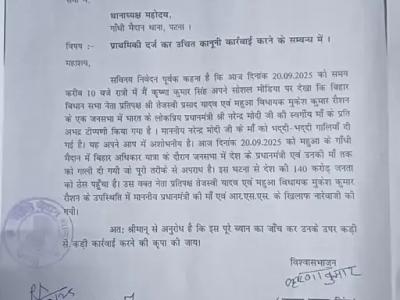 थानाध्यक्ष महोदय,
गाँधी मैदान थाना, पटना ।
विषय :- प्राथमिकी दर्ज कर उचित कानूनी कार्रवाई करने के सम्बन्ध में ।
महाशय,
सविनय निवेदन पूर्वक कहना है कि आज दिनांक 20.09.2025 को समय
करीब 10 बजे रात्री में मैं कृष्णा कुमार सिंह अपने सोशल मीडिया पर देखा कि बिहार
विधान सभा नेता प्रतिपक्ष श्री तेजस्वी प्रसाद यादव एवं महुआ विधायक मुकेश कुमार रौशन
के एक जनसभा में भारत के लोकप्रिय प्रधानमंत्री श्री नरेन्द्र मोदी जी की स्वर्गीय माँ के प्रति
अभद्र टीप्पणी किया गया है । माननीय नरेन्द्र मोदी जी के माँ को भद्दी-भद्दी गालियाँ दी
गई है। यह अपने आप में अशोभनीय है। आज दिनांक 20.09.2025 को महुआ के गाँधी
मैदान में बिहार अधिकार यात्रा के दौरान जनसभा में देश के प्रधानमंत्री एवं उनकी माँ तक
को गाली दी गयी जो पूरी तरीके से अपराध है। इस घटना से देश की 140 करोड़ जनता
को ठेस पहुँचा है। उस वक्त नेता प्रतिपक्ष तेजस्वी यादव एवं महुआ विधायक मुकेश कुमार
रौशन के उपस्थिति में माननीय प्रधानमंत्री की माँ एवं आर.एस.एस. के खिलाफ नारेबाजी की
गयी।
अतः श्रीमान् से अनुरोध है कि इस पूरे ब्यान का जाँच कर उनके उपर कड़ी
से कड़ी कार्रवाई करने की कृपा की जाय।
विश्वासभाजन
कृष्णा कुमार